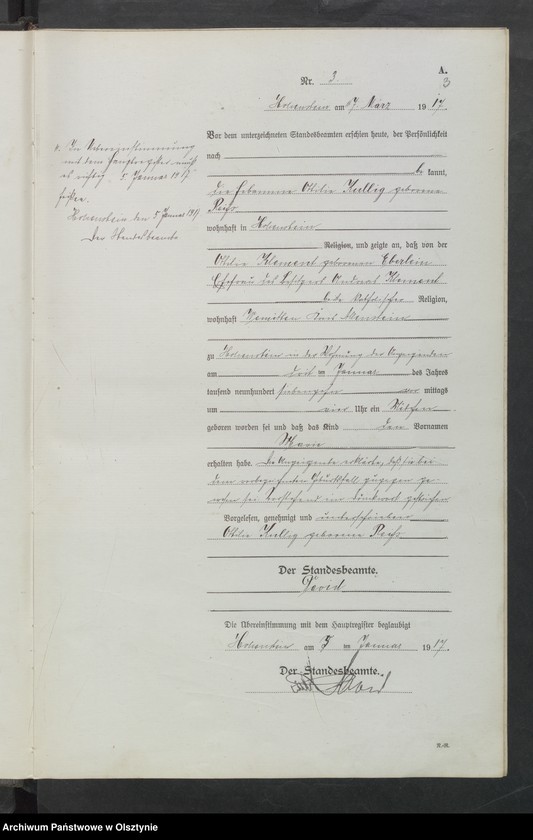 A.
Nr. 3
3
Hohenstein am 17. März 1917.
Vor dem unterzeichneten Standesbeamten erschien heute, der Persönlichkeit
nach
be kannt,
die Hebamme Ottilie Kullig geborene
wohnhaft in Hohenstein
Religion, und zeigte an, daß von der
Ottilie Klement geborenen Eberlein
Ehefrau des Klement
beide katholischer Religion,
wohnhaft Kreis Allenstein
zu Hohenstein in der Wohnung der Anzeigenden
am drei ten Januar des Jahres
tausend neunhundert siebenzehn vor mittags
um vier Uhr ein Mädchen
geboren worden sei und daß das Kind den Vornamen
Marie
erhalten habe. Die Anzeigende erklärte, daß sie bei
dem Geburtsfall zugegen ge-
wesen sei.
Vorgelesen, genehmigt und unterschrieben
Ottilie Kullig geborene
Der Standesbeamte.
Die Übereinstimmung mit dem Hauptregister beglaubigt
Hohenstein am 5 ten Januar 1917.
Der Standesbeamte.
In Übereinstimmung
mit dem Hauptregister muß
es richtig 5. Januar 1917
heißen.
Hohenstein, den 5 Januar 1917
Der Standesbeamte
R.-M.
Archiwum Państwowe w Olsztynie